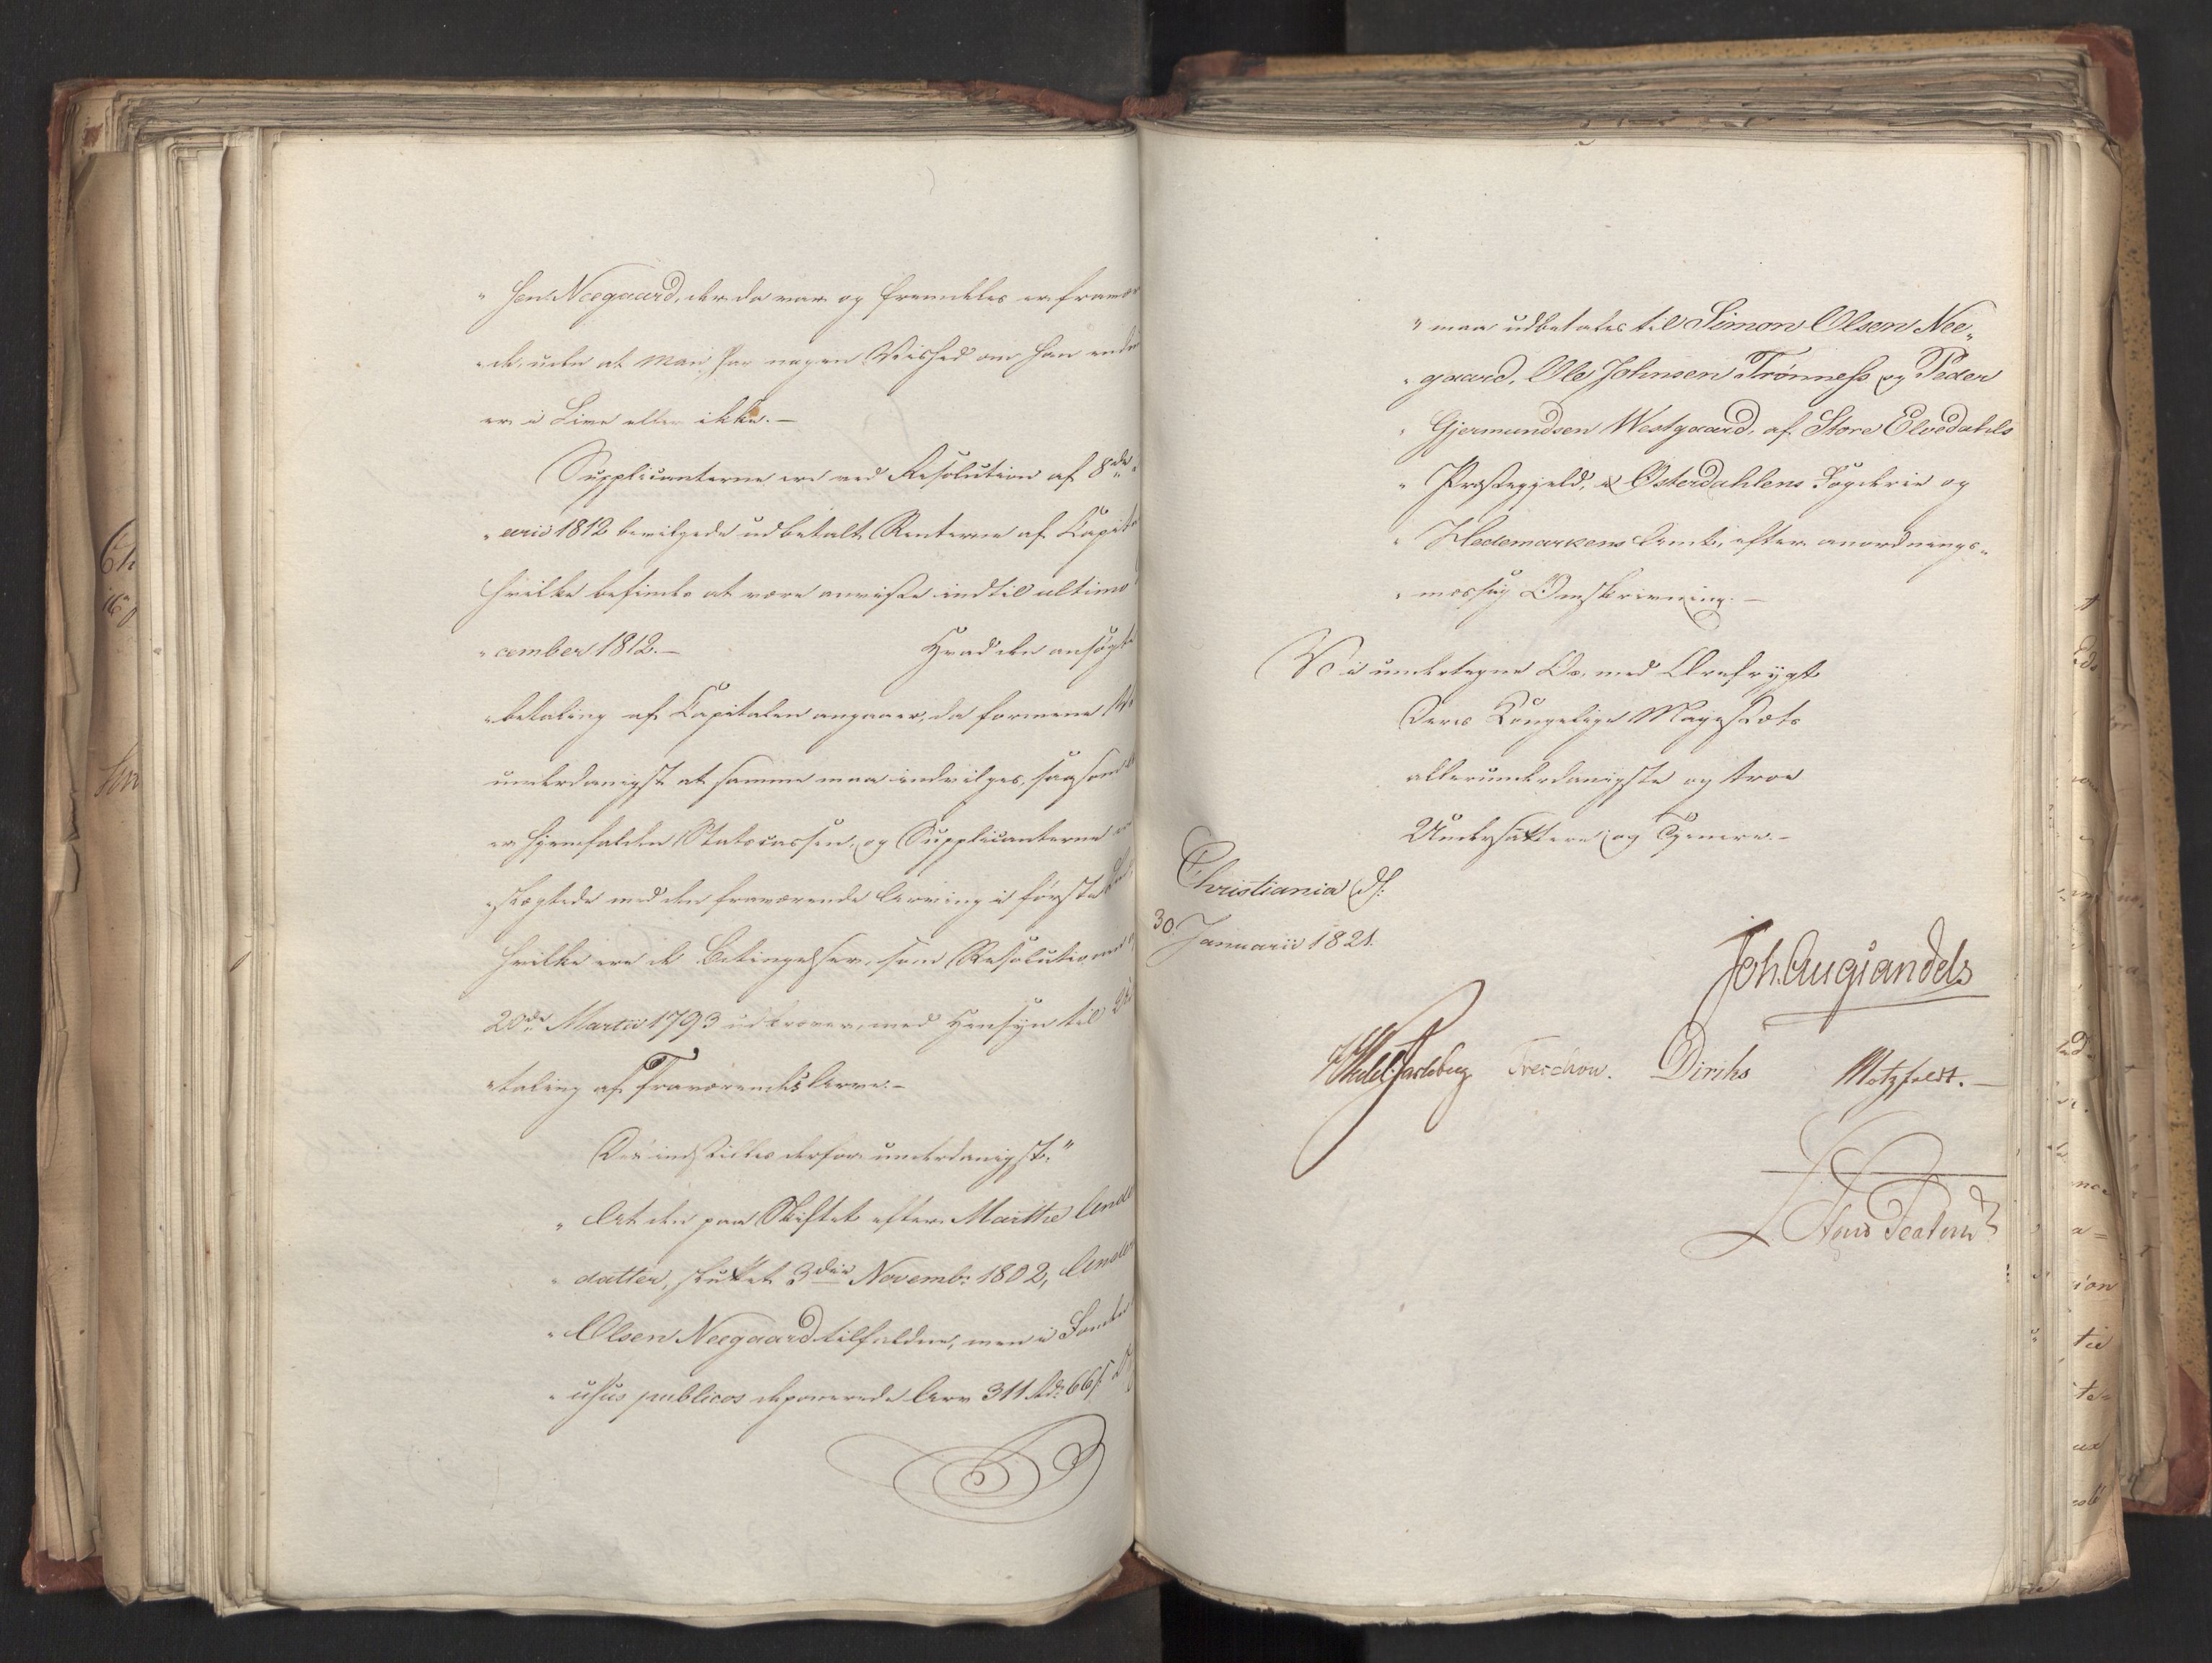 " sen Neegaard, der da var og fremdeles er fravæ-
" de, uden at man har nogen Vished om han endnu
er i Live eller ikke. –
Supplicanterne ere ved Resolution af 8de
" arii 1812 bevilgede udbetalt Renterne af Capit
hvilke befindes at være anviste indtil ultimo
" cember 1812. – Hvad den ansøgte
" betaling af Capitalen angaaer, da formene
underdanigst at samme maa indvilges, saasom
er hjemfalden Statscassen, og Supplicanterne
" slægtede med den fraværende Arving i første
hvilke ere de Betingelser, som Resolutionen
20de Martii 1793 udkræver, med Hensyn til
" taling af Fraværendes Arve. –
Det indstilles derfor underdanigst:"
" At den paa Skiftet efter Marthe Ande
" datter, sluttet 3die Novembr 1802, Ander
" Olsen Neegaard tilfaldne, men i Fonden
" usus publicos deponerede Arv 311 Rdr 66 s.
" maa udbetales til Simon Olsen Nee„
" gaard, Ole Johnsen Trønness og Peder
" Gjermundsen Westgaard, af Store Elvedahls
" Præstegjeld, Østerdahlens Fogderie og
" Hedemarkens Amt, efter anordnings„
" mæssig Omskrivning. –
Vi undertegne Os med Ærefrygt
Deres Kongelige Majestæts
allerunderdanigste og troe
Undersåttere og Tjenere. –
Christiania d:
30 Januarii 1821.
Joh. Aug. Sandels
Wedel Jarlsberg Treschow. Diriks Motzfeldt. –